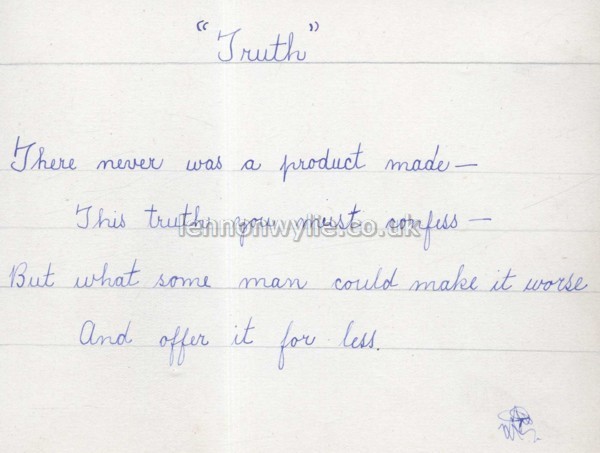 "Truth"
There never was a product made —
This truth you must confess —
lennonwylie.co.uk
But what some man could make it worse
And offer it for less.